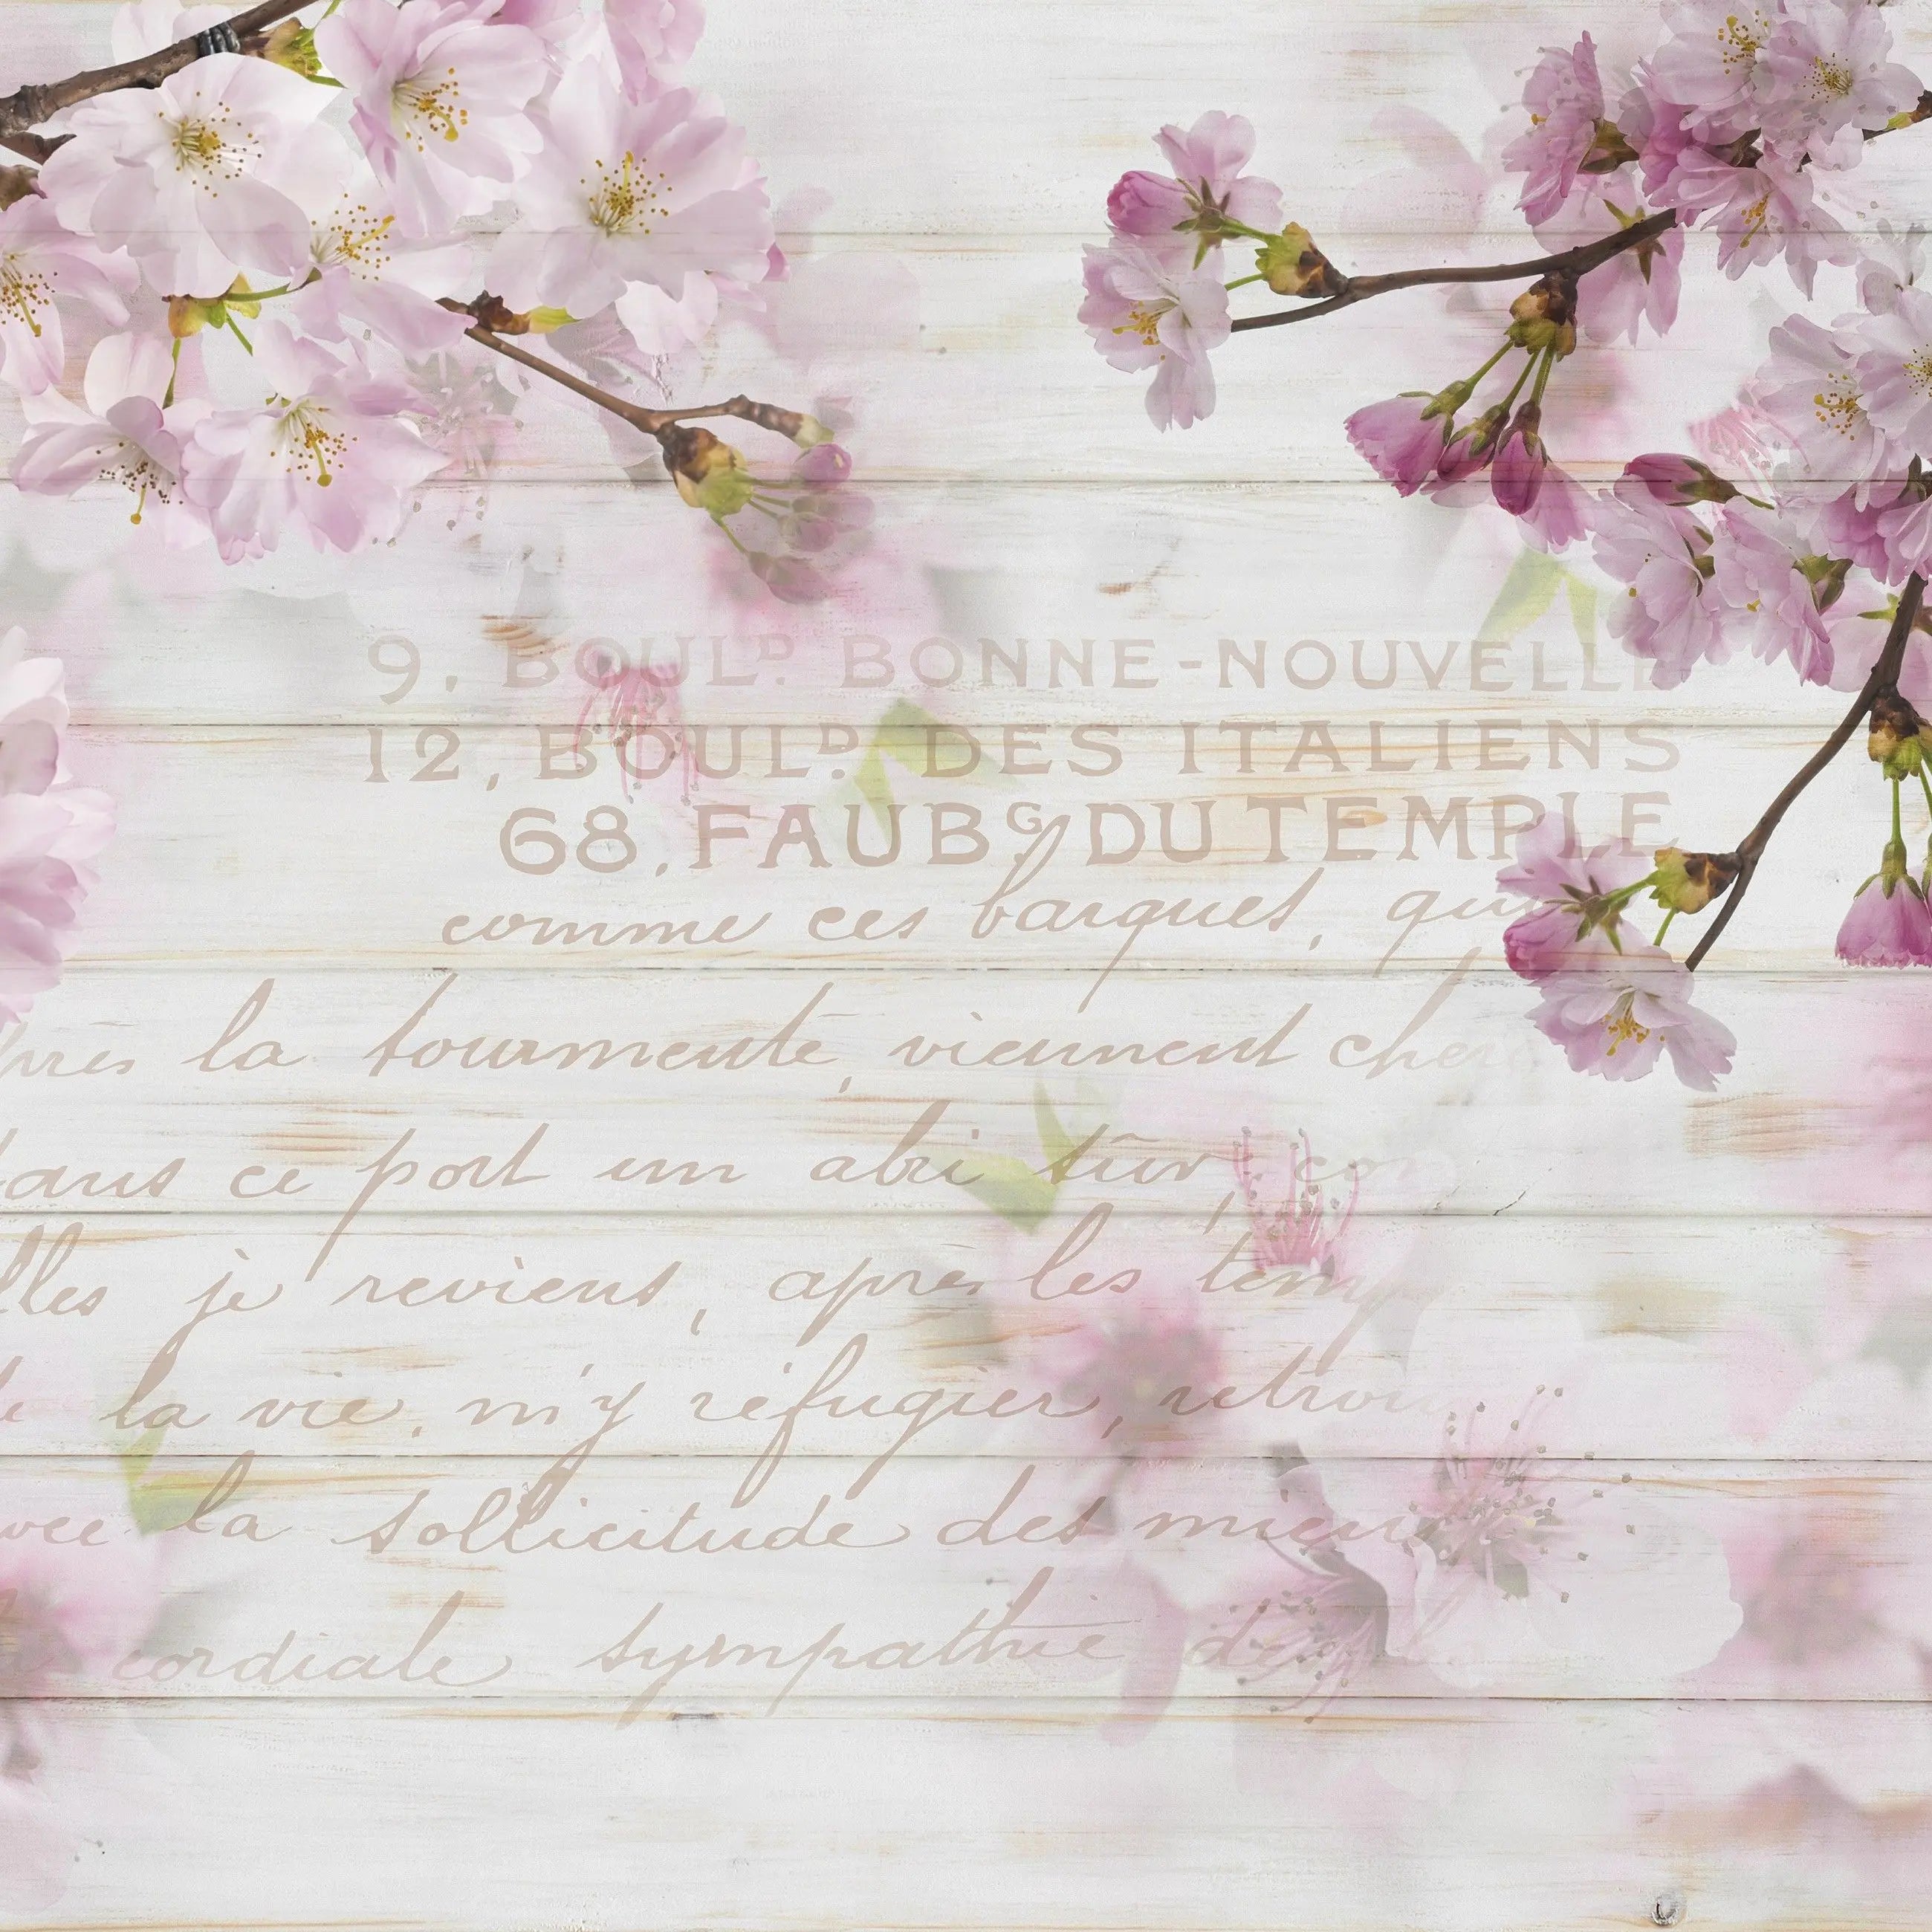 9. BOULD. BONNE-NOUVELLE
12, BOULD. DES ITALIENS
68, FAUBG. DU TEMPLE
comme ces barques, qui
près la tourmente, viennent cher
dans ce port un abri sûr, com
lles je reviens, après les temp
la vie, m'y réfugier, retrou
vec la sollicitude des miens
cordiale sympathie de